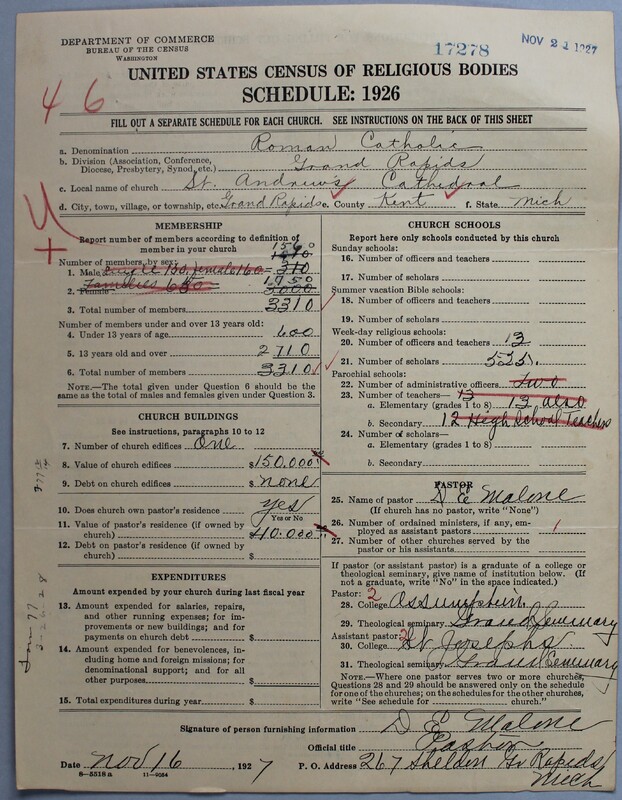 DEPARTMENT OF COMMERCE
BUREAU OF THE CENSUS
WASHINGTON
17278
NOV 21 1927
UNITED STATES CENSUS OF RELIGIOUS BODIES
SCHEDULE: 1926
4 6
FILL OUT A SEPARATE SCHEDULE FOR EACH CHURCH. SEE INSTRUCTIONS ON THE BACK OF THIS SHEET
a. Denomination Roman Catholic
b. Division (Association, Conference, Diocese, Presbytery, Synod, etc.) Grand Rapids
c. Local name of church St. Andrew's Cathedral
d. City, town, village, or township, etc. Grand Rapids e. County Kent f. State Mich
MEMBERSHIP
Report number of members according to definition of
member in your church
Number of members, by sex:
1560
1. Male
310
1750
2. Female Families 650
3. Total number of members 3310
Number of members under and over 13 years old:
4. Under 13 years of age 600
5. 13 years old and over 2710
6. Total number of members 3310
NOTE.—The total given under Question 6 should be
same as the total of males and females given under Question 3.
CHURCH BUILDINGS
See instructions, paragraphs 10 to 12
7. Number of church edifices One
8. Value of church edifices $150.000
9. Debt on church edifices $ none
10. Does church own pastor's residence? yes
Yes or No
11. Value of pastor's residence (if owned by
church) $40.000
12. Debt on pastor's residence (if owned by
church) $
EXPENDITURES
Amount expended by your church during last fiscal year
13. Amount expended for salaries, repairs,
and other running expenses; for im-
provements or new buildings; and for
payments on church debt $
14. Amount expended for benevolences,
including home and foreign missions; for
denominational support; and for all
other purposes $
15. Total expenditures during year $
CHURCH SCHOOLS
Report here only schools conducted by this church
Sunday schools:
16. Number of officers and teachers
17. Number of scholars
Summer vacation Bible schools:
18. Number of officers and teachers
19. Number of scholars
Week-day religious schools:
20. Number of officers and teachers 13
21. Number of scholars 525
Parochial schools:
22. Number of administrative officers Two
23. Number of teachers— 13
a. Elementary (grades 1 to 8) 13 also
b. Secondary 12 High School Teachers
24. Number of scholars—
a. Elementary (grades 1 to 8)
b. Secondary
PASTOR
25. Name of pastor D E Malone
(If church has no pastor, write "None")
26. Number of ordained ministers, if any, em-
ployed as assistant pastors 1
27. Number of other churches served by the
pastor or his assistants
If pastor (or assistant pastor) is a graduate of a college or
theological seminary, give name of institution below. (If
not a graduate, write "No" in the space indicated.)
Pastor: 2
28. College Assumption
29. Theological seminary Grand Seminary
Assistant pastor: 2
30. College St Josephs
31. Theological seminary Grand Seminary
NOTE.—Where one pastor serves two or more churches,
Questions 28 and 29 should be answered only on the schedule
for one of the churches; on the schedules for the other churches,
write "See schedule for church."
Signature of person furnishing information D E Malone
Official title Pastor
Date Nov 16, 1927 P. O. Address 267 Sheldon Gr Rapids
Mich
8—5518 a 11—9084